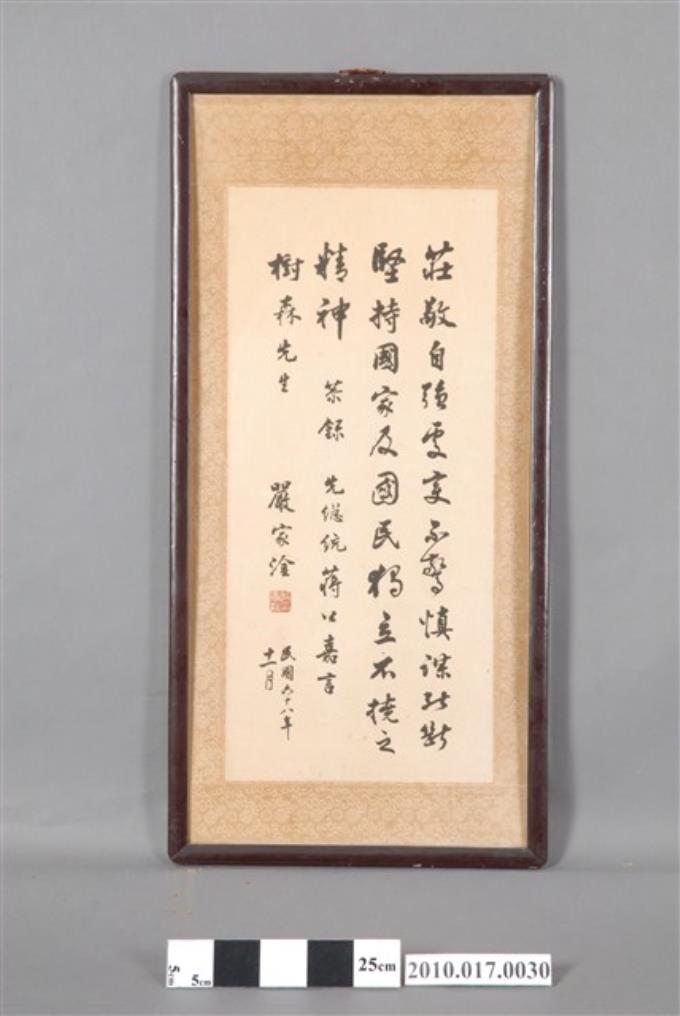 莊敬自強處變不驚慎謀能斷
堅持國家及國民獨立不撓之
精神 恭錄 先總統蔣公嘉言
樹森先生 嚴家淦
民國六十八年
十一月
5cm
25cm
2010.017.0030